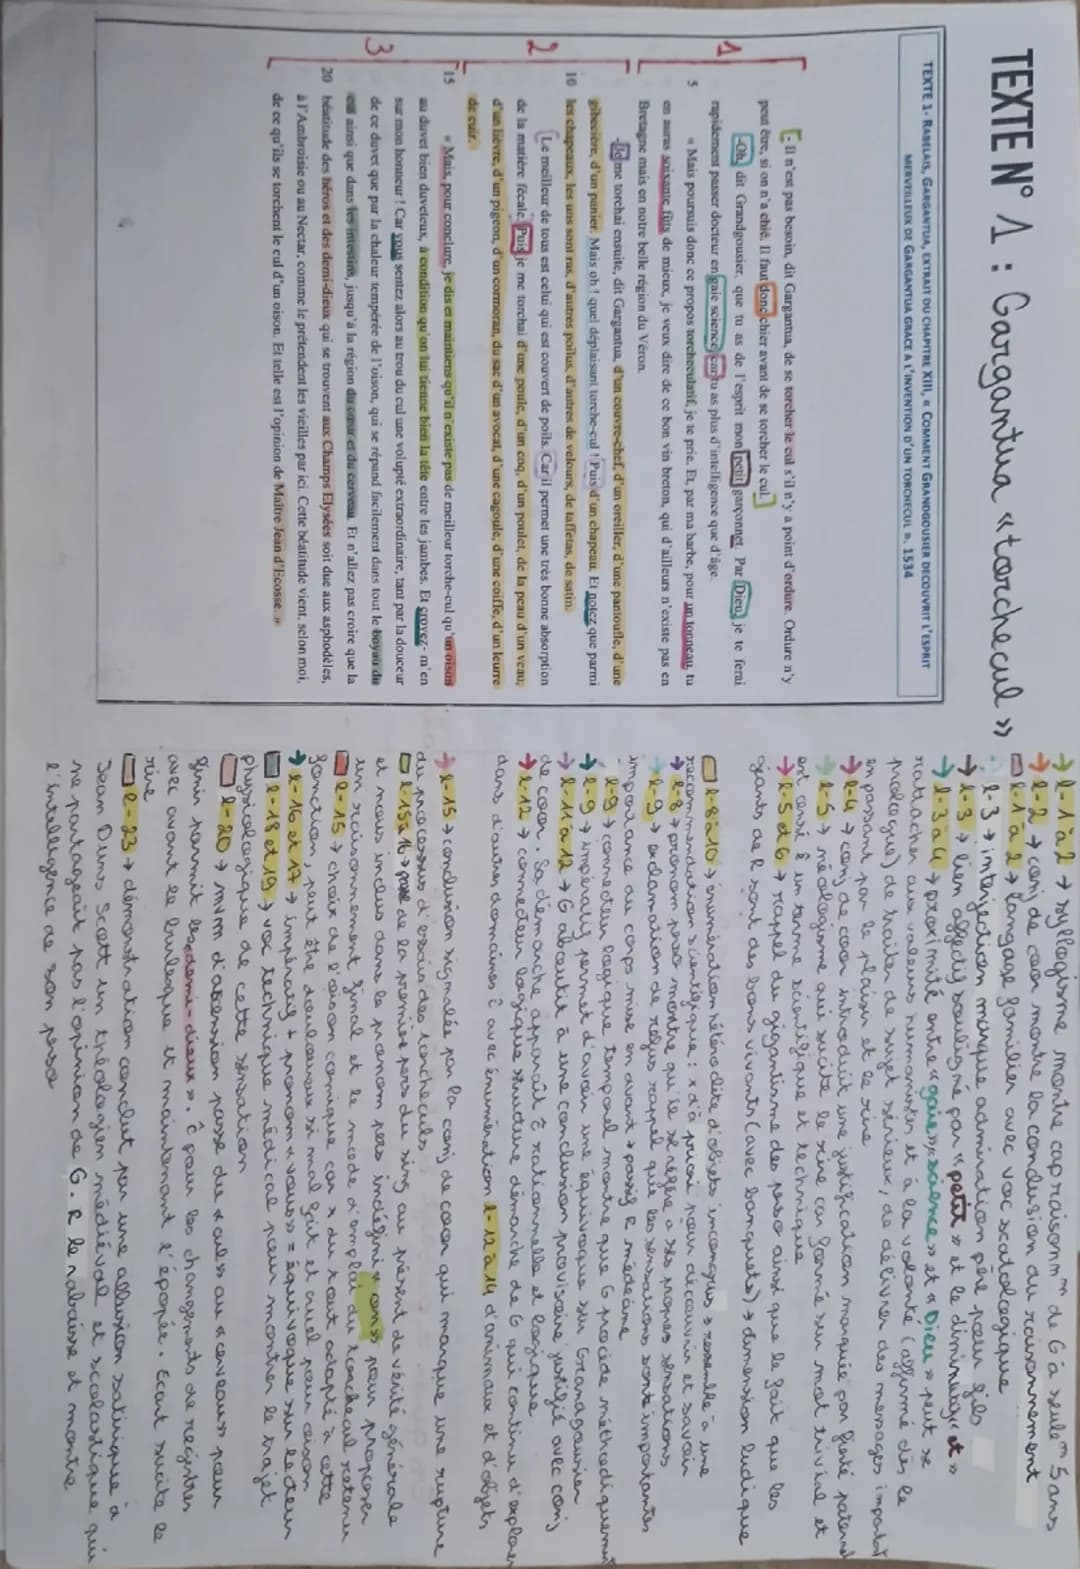 TEXTE N° 1 : Gargantua « torchecul »
TEXTE 1- RABELAIS, GARGANTUA, EXTRAIT DU CHAPITRE XIII, « COMMENT GRANDGOUSIER DECOUVRIT L'ESPRIT
MERVEILLEUX DE GARGANTUA GRACE A L'INVENTION D'UN TORCHECUL ». 1534
1
2
3
- Il n'est pas besoin, dit Gargantua, de se torcher le cul s'il n'y a point d'ordure. Ordure n'y
peut être, si on n'a chié. Il faut donc chier avant de se torcher le cul.
-Oh, dit Grandgousier, que tu as de l'esprit mon petit garçonnet. Par Dieu, je te ferai
rapidement passer docteur en gaie science, car tu as plus d'intelligence que d'âge.
5 « Mais poursuis donc ce propos torcheculatif, je te prie. Et, par ma barbe, pour un tonneau, tu
en auras soixante fûts de mieux, je veux dire de ce bon vin breton, qui d'ailleurs n'existe pas en
Bretagne mais en notre belle région du Véron.
-Je me torchai ensuite, dit Gargantua, d'un couvre-chef, d'un oreiller, d'une pantoufle, d'une
gibecière, d'un panier. Mais oh ! quel déplaisant torche-cul ! Puis d'un chapeau. Et notez que parmi
10 les chapeaux, les uns sont ras, d'autres poilus, d'autres de velours, de taffetas, de satin.
Le meilleur de tous est celui qui est couvert de poils. Car il permet une très bonne absorption
de la matière fécale. Puis je me torchai d'une poule, d'un coq, d'un poulet, de la peau d'un veau,
d'un lièvre, d'un pigeon, d'un cormoran, du sac d'un avocat, d'une cagoule, d'une coiffe, d'un leurre
de cuir.
15 « Mais, pour conclure, je dis et maintiens qu'il n'existe pas de meilleur torche-cul qu'un oison
au duvet bien duveteux, à condition qu'on lui tienne bien la tête entre les jambes. Et croyez- m'en
sur mon honneur ! Car vous sentez alors au trou du cul une volupté extraordinaire, tant par la douceur
de ce duvet que par la chaleur tempérée de l'oison, qui se répand facilement dans tout le boyau du
cul ainsi que dans les intestins, jusqu'à la région du cœur et du cerveau. Et n'allez pas croire que la
20 béatitude des héros et des demi-dieux qui se trouvent aux Champs Elysées soit due aux asphodèles,
à l'Ambroisie ou au Nectar, comme le prétendent les vieilles par ici. Cette béatitude vient, selon moi,
de ce qu'ils se torchent le cul d'un oison. Et telle est l'opinion de Maître Jean d'Ecosse. »
→ l-1 à 2 → syllogisme montre cap raisonnᵐ de G à seulᵐ 5 ans
→ l-2 → conj de coor montre la conclusion du raisonnement
l-1 à 2 → langage familier avec voc scatologique
l-3 → interjection marque admiration père pour fils
→ l-3 → lien affectif souligné par « petit » et le diminutif « et »
→ l-3 à 4 → proximité entre « gaie » « science » et « Dieu » peut se
rattacher aux valeurs humanistes et à la volonté (affirmé dès le
prologue) de traiter de sujet sérieux, de délivrer des messages important
en passant par le plaisir et le rire
→ l-4 → conj de coor introduit une justification marquée par fierté paternel
→ l-5 → néologisme qui suscite le rire car formé sur mot trivial et
est censé ê un terme scientifique et technique
→ l-5 et 6 → rappel du gigantisme des perso ainsi que le fait que les
géants de R sont des bons vivants (avec banquets) → dimension ludique
l-8 à 10 → énumération hétéroclite d'objets incongrus → ressemble à une
recommandation scientifique : x d'à priori pour découvrir et savoir
→ l-8 → pronom perso montre qu'il se réfère a ses propres sensations
→ l-9 → exclamation de refus rappel que les sensations sont importantes
importance au corps mise en avant → passif R médecine
l-9 → connecteur logique temporel montre que G procède méthodiquement
→ l-9 → impératif permet d'avoir une équivoque sur Grandgousier
→ l-11 à 12 → G aboutit à une conclusion provisoire justifié avec conj
de coor. Sa démarche apparaît ê rationnelle et logique
→ l-12 → connecteur logique structure démarche de G qui continue d'explorer
dans d'autres domaines ĉ avec énumération l-12 à 14 d'animaux et d'objets
→ l-15 → conclusion signalée par la conj de coor qui marque une rupture
du processus d'essais des torcheculs
l-15 à 16 → de la première pers du sing au présent de vérité générale
et nous inclus dans le pronom pers indéfini « on » pour proposer
un raisonnement final et le mode d'emploi du torchecul retenu
l-15 → choix de l'oison comique car x du tout adapté à cette
fonction, peut être douloureux si mal fait et cruel pour oison
→ l-16 et 17 → impératif + pronom « vous » = équivoque sur lecteur
l-18 et 19 → voc technique médical pour montrer le trajet
physiologique de cette sensation
l-20 → mvm d'ascension passe du « cul » au « cerveau » pour
finir parmi les « demi-dieux ». ĉ pour les changements de registres
avec avant le burlesque et maintenant l'épopée. Ecart suscite le
rire
l-23 → démonstration conclut par une allusion satirique à
Jean Duns Scott un théologien médiéval et scolastique qui
ne partageait pas l'opinion de G. R le rabaisse et montre
l'intelligence de son perso